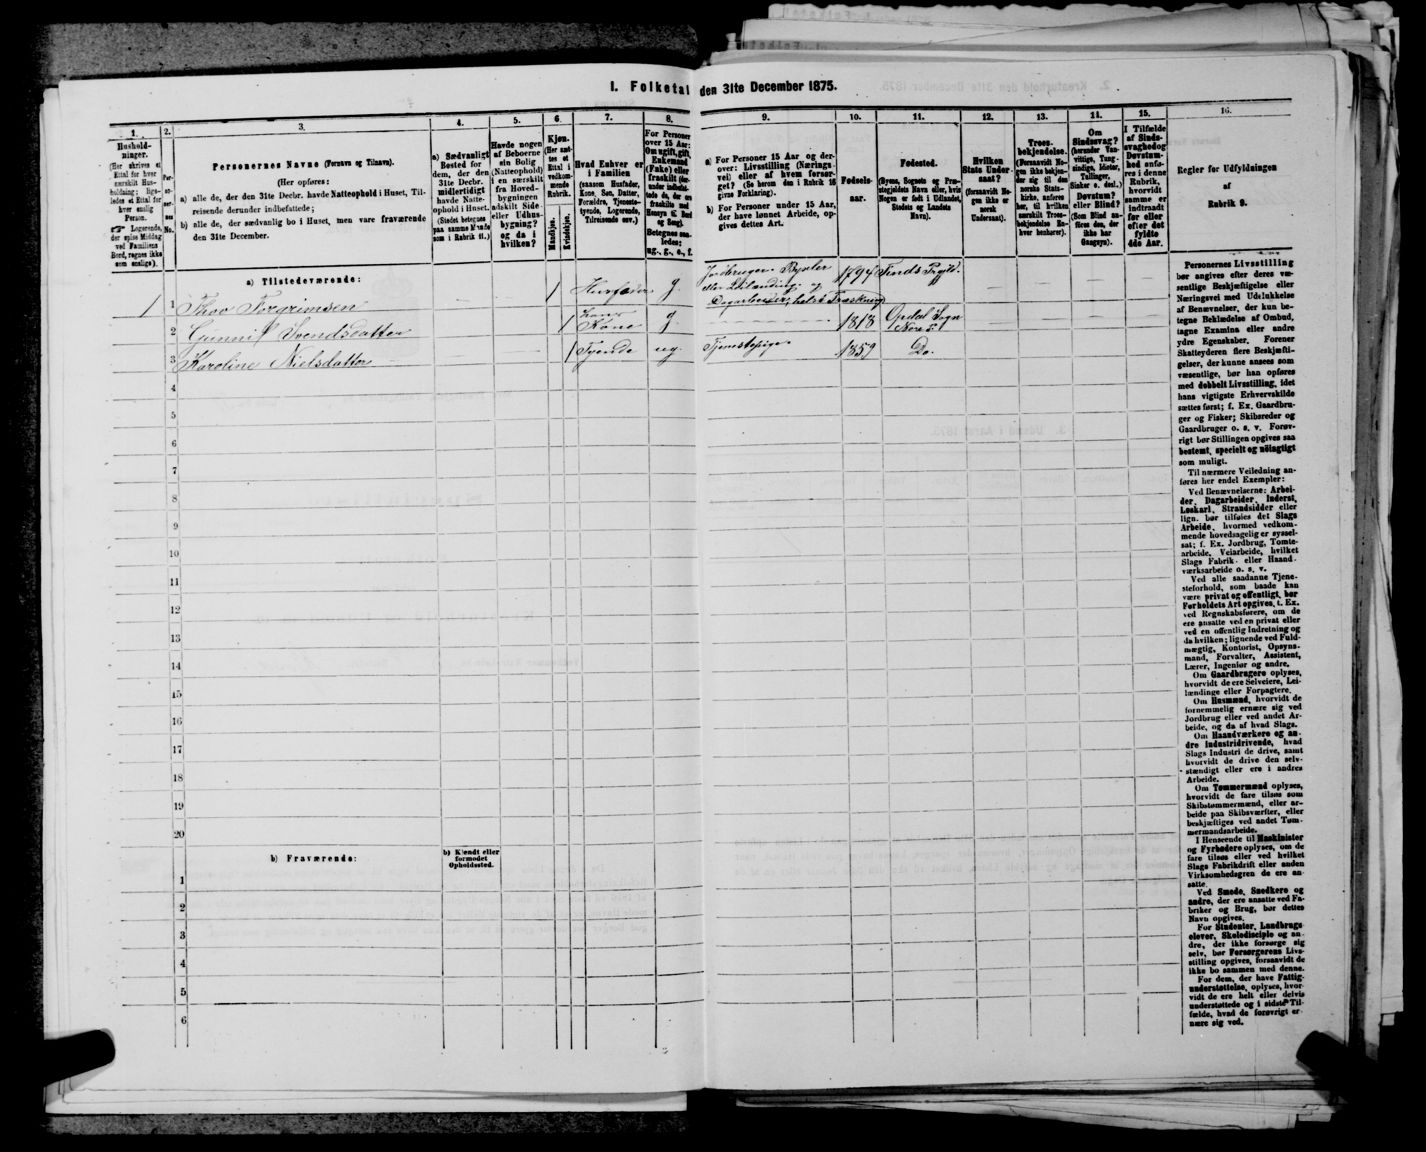 I. Folketal den 31te December 1875.
1.
Hushold-
ninger.
(Her skrives et
Ettal for hver
særskilt Hus-
holdning; lige-
ledes et Ettal for
hver enslig
Person.
☞ Logerende,
der spise Middag
ved Familiens
Bord, regnes ikke
som enslige).
2.
Per-
so-
ner-
nes
No.
3.
Personernes Navne (Fornavn og Tilnavn).
(Her opføres:
a) alle de, der den 31te Decbr. havde Natteophold i Huset, Til-
reisende derunder indbefattede;
b) alle de, der sædvanlig bo i Huset, men vare fraværende
den 31te December.
4.
a) Sædvanligt
Bosted for
dem, der den
31te Decbr.
midlertidigt
havde Natte-
ophold i Huset.
(Stedet betegnes
paa samme Maade
som i Rubrik 11.)
5.
Havde nogen
af Beboerne
sin Bolig
(Natteophold)
i en særskilt
fra Hoved-
bygningen
adskilt Side-
eller Udhus-
bygning?
og da i
hvilken?
6.
Kjøn.
(Her sæt-
tes et
Ettal i
vedkom-
mende
Rubrik.
Mandkjøn.
Kvindekjøn.
7.
Hvad Enhver er
i Familien
(saasom Husfader,
Kone, Søn, Datter,
Forældre, Tjeneste-
tyende, Logerende,
Tilreisende osv.)
8.
For Personer
over 15 Aar:
Om ugift, gift,
Enkemand
(Enke) eller
fraskilt
Betegnes saa-
ledes:
ug., g., e., f.
9.
a) For Personer 15 Aar og der-
over: Livsstilling (Nærings-
vei) eller af hvem forsør-
get? (Se herom den i Rubrik 16
givne Forklaring).
b) For Personer under 15 Aar,
der have lønnet Arbeide, op-
gives dettes Art.
10.
Fødsels-
aar.
11.
Fødested.
(Byens, Sognets og Præ-
stegjeldets Navn eller, hvis
Nogen er født i Udlandet,
Stedets og Landets
Navn).
12.
Hvilken
Stats Under-
saat?
(forsaavidt No-
gen ikke er
norsk
Undersaat).
13.
Troes-
bekjendelse.
(Forsaavidt No-
gen ikke bekjen-
der sig til den
norske Stats-
kirke, anføres
her, til hvilken
særskilt Troes-
bekjendelse En-
hver henhører).
14.
Om
Sindssvag?
(herunder Van-
vittige, Tung-
sindige, Idioter,
Tullinger,
Sinker o. desl.)
Døvstum?
eller Blind?
(Som Blind an-
føres den, der
ikke har
Gangsyn).
15.
I Tilfælde
af Sinds-
svaghed og
Døvstum-
hed anfø-
res i denne
Rubrik,
hvorvidt
samme er
indtraadt
før eller
efter det
fyldte
4de Aar.
16.
Regler for Udfyldningen
af
Rubrik 9.
a) Tilstedeværende:
1 1 Thoo Torgrimsen 1 Husfader g. Jordbruger Bygsler
eller Leilænding og
Dagarbeider, helst Træskning 1794 Tinds Prgjld.
2 Gunnil Svendsdatter 1 Kone g. 1818 Opdal Sogn
Nore P.
3 Karoline Nielsdatter 1 Tyende ug. Tjenestepige 1859 Do.
4
5
6
7
8
9
10
11
12
13
14
15
16
17
18
19
20
b) Fraværende:
b) Kjendt eller
formodet
Opholdssted.
1
2
3
4
5
6
Personernes Livsstilling
bør angives efter deres væ-
sentlige Beskjæftigelse eller
Næringsvei med Udelukkelse
af Benævnelser, der kun be-
tegne Beklædelse af Ombud,
tagne Examina eller andre
ydre Egenskaber. Forener
Skatteyderen flere Beskjæfti-
gelser, der kunne ansees som
væsentlige, bør han opføres
med dobbelt Livsstilling, idet
hans vigtigste Erhvervskilde
sættes først; f. Ex. Gaardbru-
ger og Fisker; Skibsreder og
Gaardbruger o. s. v. Forøv-
rigt bør Stillingen opgives saa
bestemt, specielt og nöiagtigt
som muligt.
Til nærmere Veiledning an-
føres her endel Exempler:
Ved Benævnelserne: Arbei-
der, Dagarbeider, Inderst,
Løskarl, Strandsidder eller
lign. bør tilføies det Slags
Arbeide, hvormed vedkom-
mende hovedsagelig er syssel-
sat; f. Ex. Jordbrug, Tomte-
arbeide, Veiarbeide, hvilket
Slags Fabrik- eller Haand-
værksarbeide o. s. v.
Ved alle saadanne Tjene-
steforhold, som baade kan
være privat og offentligt, bør
Forholdets Art opgives, t. Ex.
ved Regnskabsførere, om de
ere ansatte ved en privat eller
ved en offentlig Indretning og
da hvilken; lignende ved Fuld-
mægtig, Kontorist, Opsyns-
mand, Forvalter, Assistent,
Lærer, Ingeniør og andre.
Om Gaardbrugere oplyses,
hvorvidt de ere Selveiere, Lei-
lændinge eller Forpagtere.
Om Husmænd, hvorvidt de
fornemmelig ernære sig ved
Jordbrug eller ved andet Ar-
beide, og da af hvad Slags.
Om Haandværkere og an-
dre industridrivende, hvad
Slags Industri de drive, samt
hvorvidt de drive den selv-
stændigt eller ere i andres
Arbeide.
Om Tømmermænd oplyses,
hvorvidt de fare tilsøs som
Skibstømmermænd, eller ar-
beide paa Skibsværfter, eller
beskjæftiges ved andet Tøm-
mermandsarbeide.
I Henseende til Maskinister
og Fyrbødere oplyses, om de
fare tilsøs eller ved hvilket
Slags Fabrikdrift eller anden
Virksomhedsgren de ere an-
satte.
Ved Smede, Snedkere og
andre, der ere ansatte ved Fa-
briker og Brug, bør dettes
Navn opgives.
For Studenter, Landbrugs-
elever, Skoledisciple og an-
dre, der ikke forsørge sig
selv, bør Forsørgerens Livs-
stilling opgives, forsaavidt de
ikke bo sammen med denne.
For dem, der have Fattig-
understøttelse, oplyses, hvor-
vidt de ere helt eller delvis
understøttede og i sidste Til-
fælde, hvad de forøvrigt er-
nære sig ved.